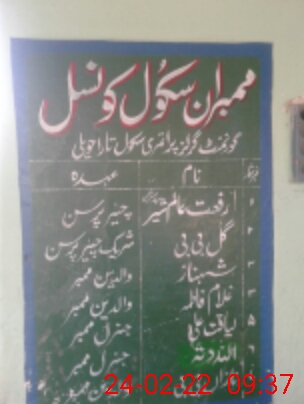 ممبران سکول کونسل
گورنمنٹ گرلز پرائمری سکول تارا حویلی
نام عہدہ
۱ رفعت چیئر پرسن
۲ گل بی بی شریک چیئر پرسن
۳ شہناز والدین ممبر
۴ غلام فاطمہ والدین ممبر
۵ لیاقت علی جنرل ممبر
۶ اللہ دتہ جنرل ممبر
24-02-22 09:37